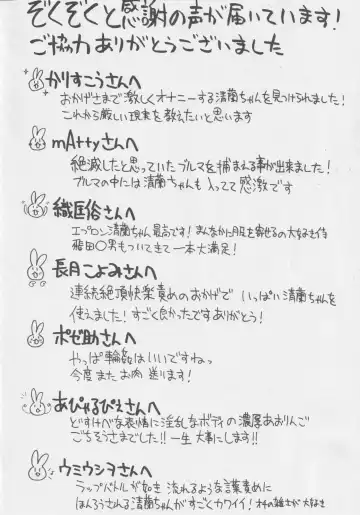 ぞくぞくと感謝の声が届いています!
ご協力ありがとうございました
かりすこうさんへ
おかげさまで激しくオナニーする清蘭ちゃんを見つけられました!
これから厳しい現実を教えたいと思います
mAttyさんへ
絶滅したと思っていたブルマを捕まえる事が出来ました!
ブルマの中には清蘭ちゃんも入ってて感激です
織匡俗さんへ
エプロン清蘭ちゃん最高です!まんなかに服を寄せるの大好き侍
飛田〇男もついてきて一本大満足!
長月こよみさんへ
連続絶頂快楽責めのおかげでいっぱい清蘭ちゃんを
使えました!すごく良かったですありがとう!
ポゼ助さんへ
やっぱ輪姦はいいですねっ
今度またお肉送ります!
あぴゃるぴえさんへ
どすけべな表情に淫乱なボディの濃厚あおりんご
ごちそうさまでした!!一生大事にします!!
ウミウシヲさんへ
ラップバトルが如き流れるような言葉責めに
ほんろうされる清蘭ちゃんがすごくカワイイ!